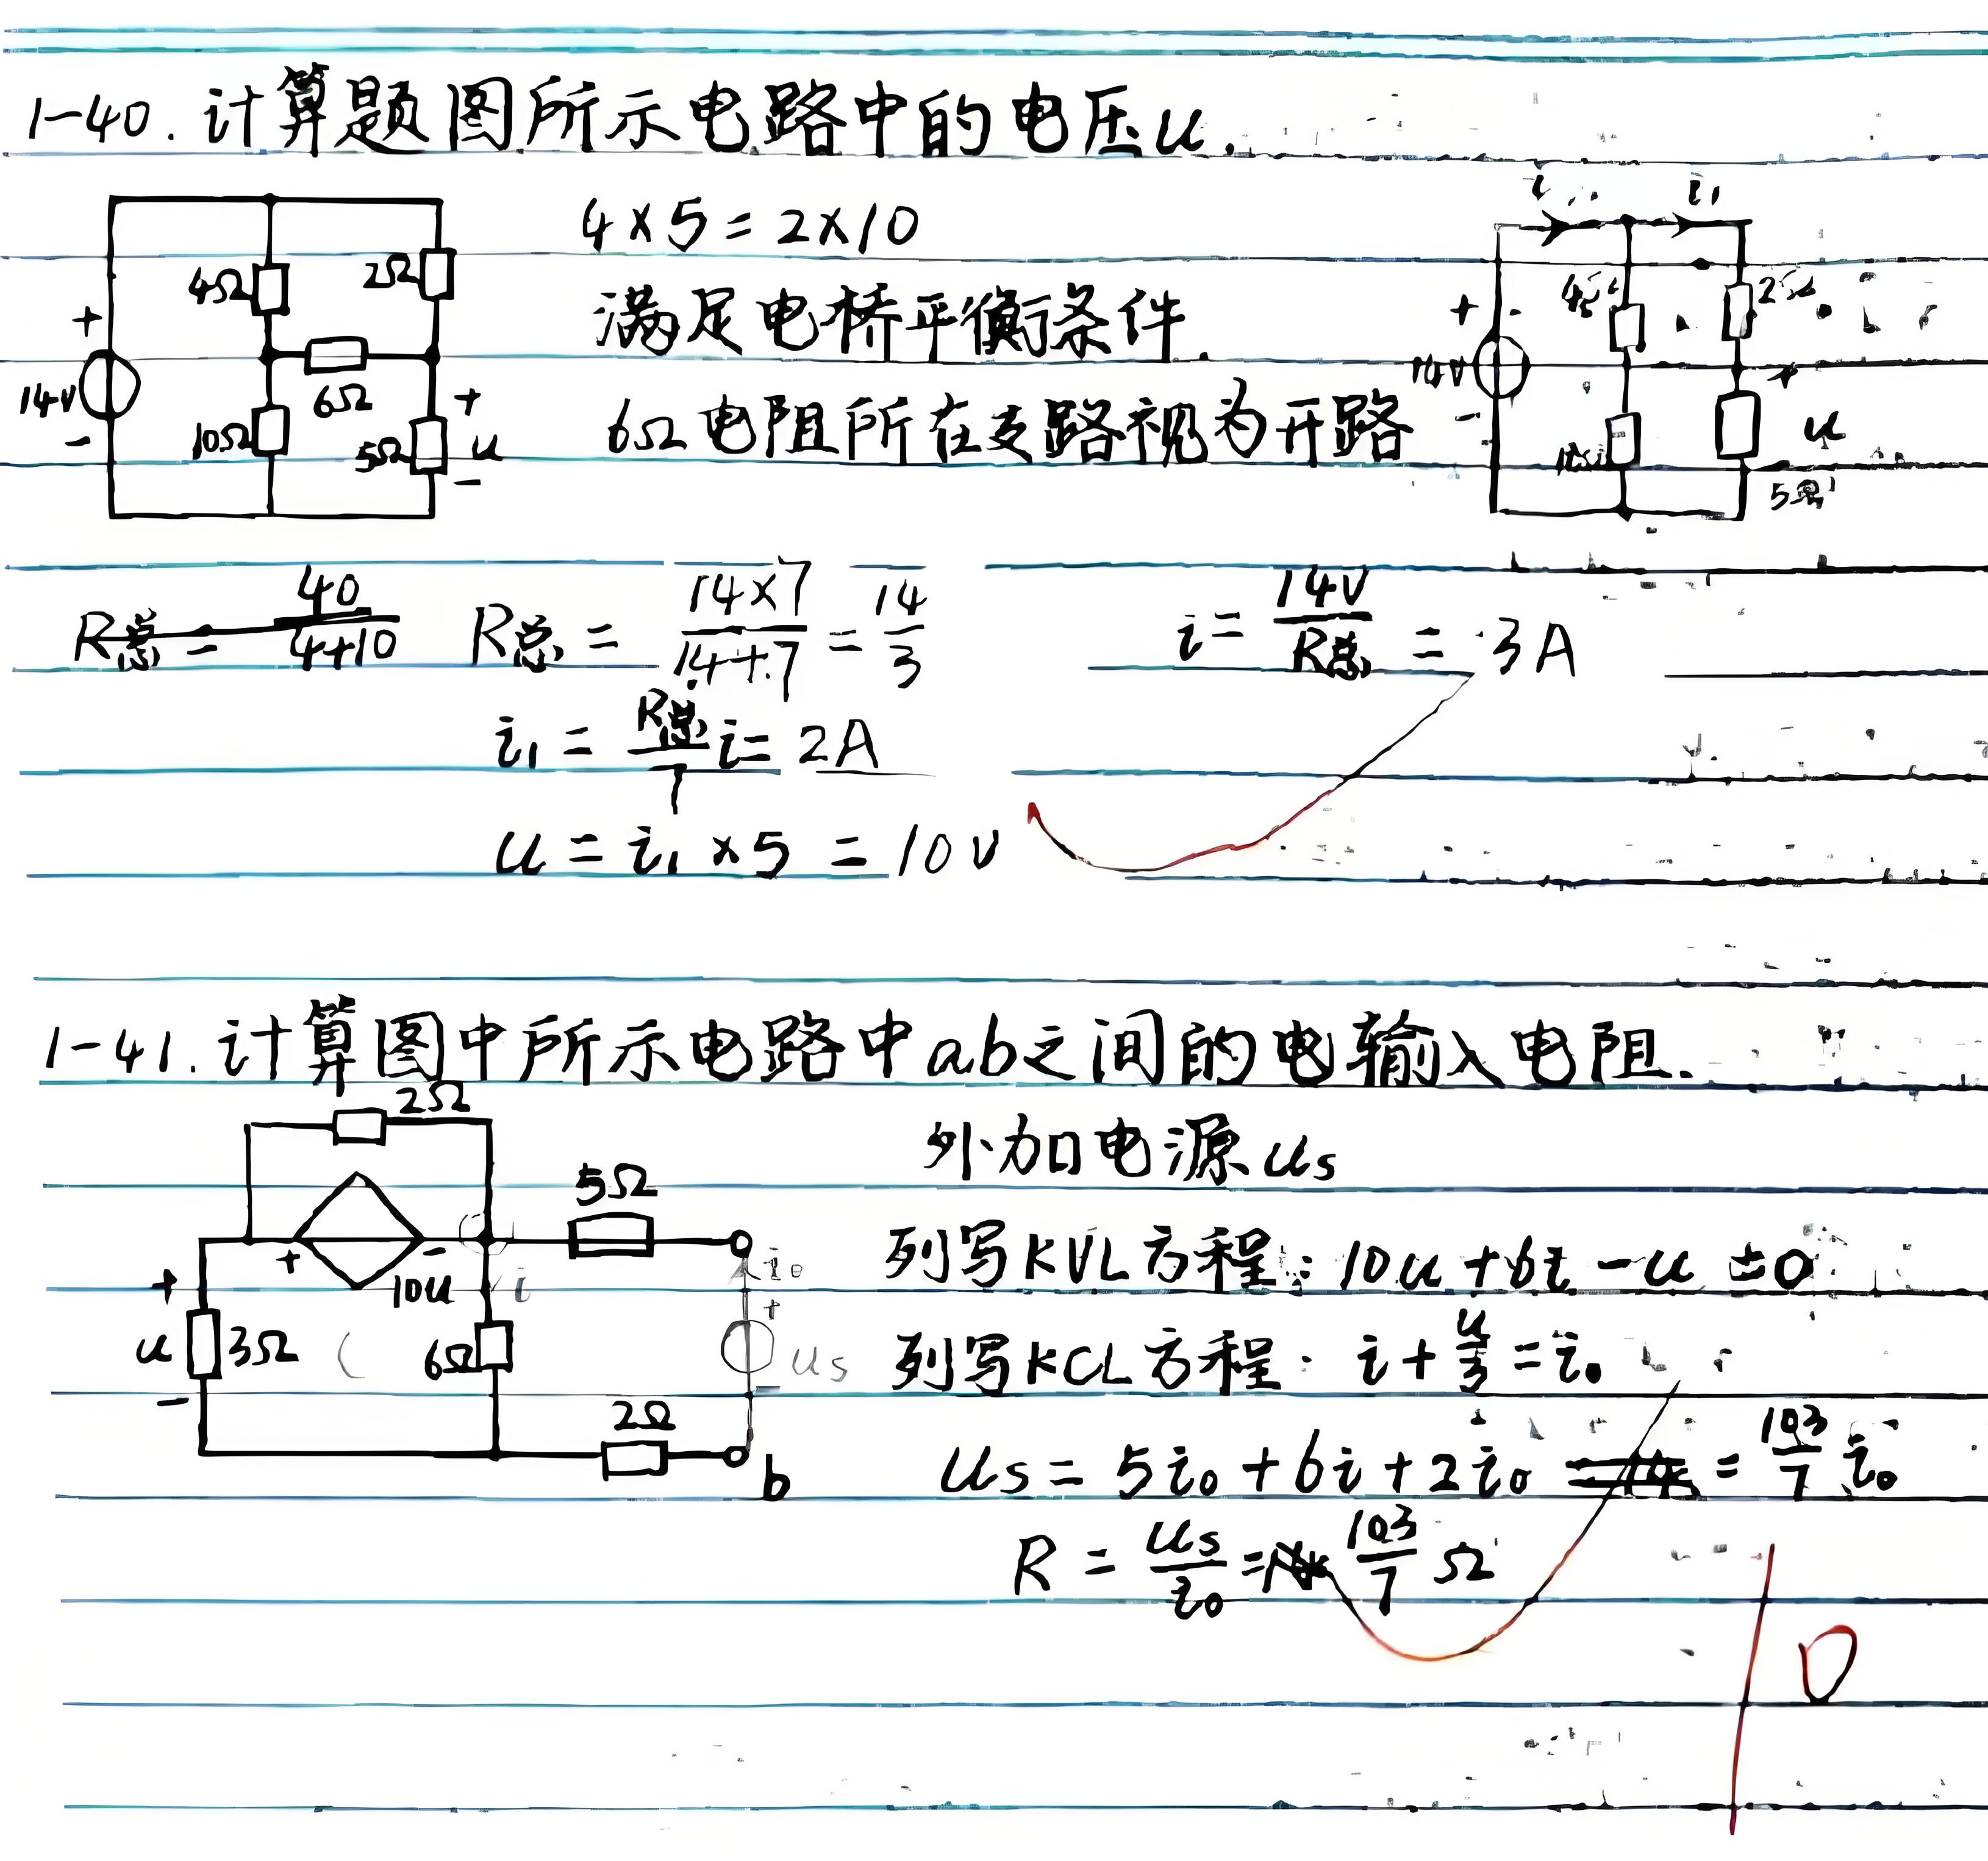 1-40. 计算题图所示电路中的电压u.
4×5=2×10
满足电桥平衡条件.
6Ω电阻所在支路视为开路
4Ω 2Ω
+
14V
-
6Ω
10Ω 5Ω
+
u
-
i i₁
4Ω 2Ω
+
14V
-
10Ω
+
u
5Ω
R总 = 40/(4+10) R总 = (14×7)/(14+7) = 14/3 i = 14V/R总 = 3A
i₁ = R总/7 i = 2A
u = i₁ × 5 = 10V
1-41. 计算图中所示电路中ab之间的电输入电阻.
2Ω
5Ω
+ - 10u
i i₀
+
u 3Ω 6Ω
-
+
us
-
2Ω
b
外加电源 us
列写KVL方程: 10u + 6i - u = 0
列写KCL方程: i + u/3 = i₀
us = 5i₀ + 6i + 2i₀ = 103/7 i₀
R = us/i₀ = 103/7 Ω
10